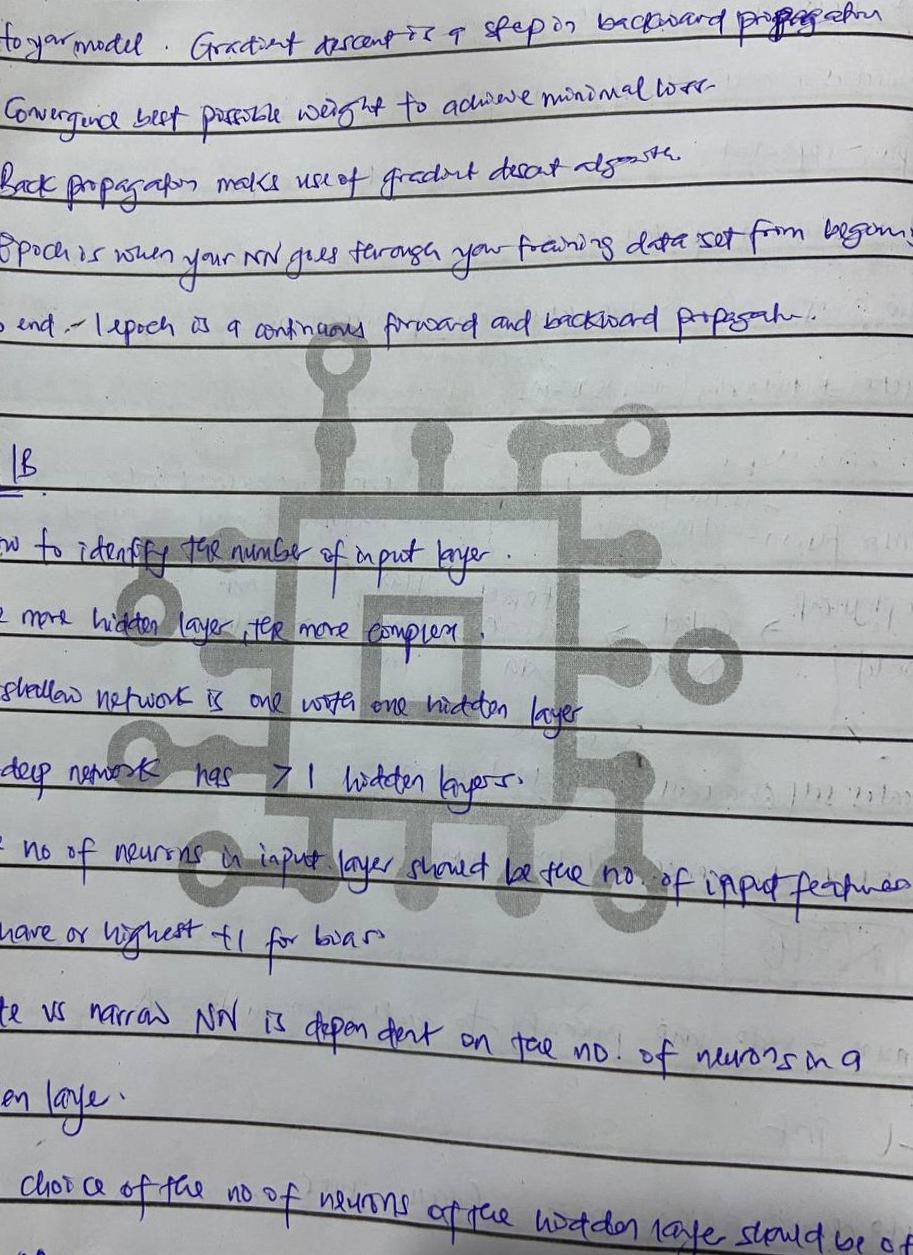 to your model. Gradient descent is a step in backward propagation
Convergence best possible weight to achieve minimal loss
Back propagation makes use of gradient descent algorithm.
Epoch is when your NN goes through your training data set from
end - 1 epoch is a continuous forward and backward propagation.
1B
to identify the number of input layer.
more hidden layer, the more complex.
shallow network is one with one hidden layer
deep network has >1 hidden layers.
no of neurons in input layer should be the no. of input features
have or highest +1 for bias
vs narrow NN is dependent on the no. of neurons in a
en laye.
choice of the no of neurons of the hidden laye should be of